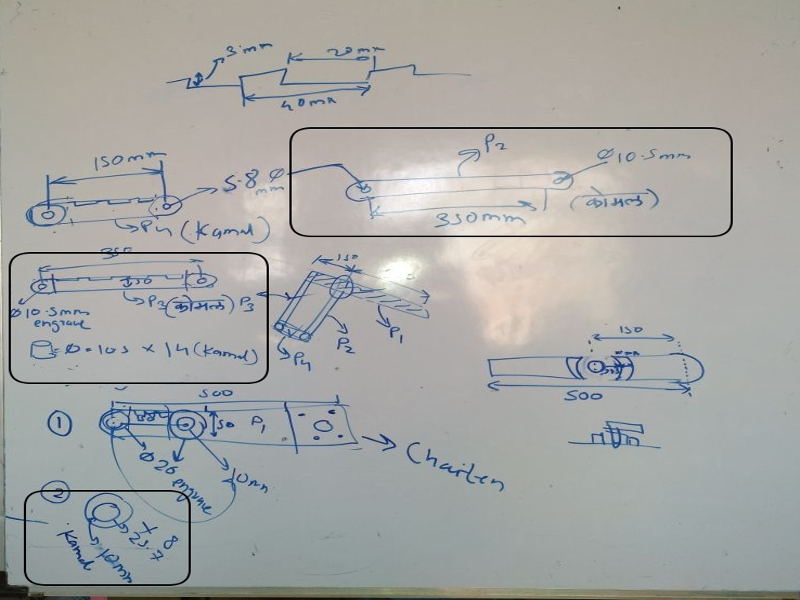 3 mm
20mm
40mm
150mm
5.8 Ø
mm
P4 (Kamal)
P2
Ø10.5mm
330mm
(कोमल)
350
P3 (कोमल)
Ø10.5mm
engrave
Ø.10.5 x 14 (Kamal)
P3
P1
P2
P4
150
500
500
1
50 P1
Ø26
engrave
10mm
2
x 8
23.7
10mm
Kamal